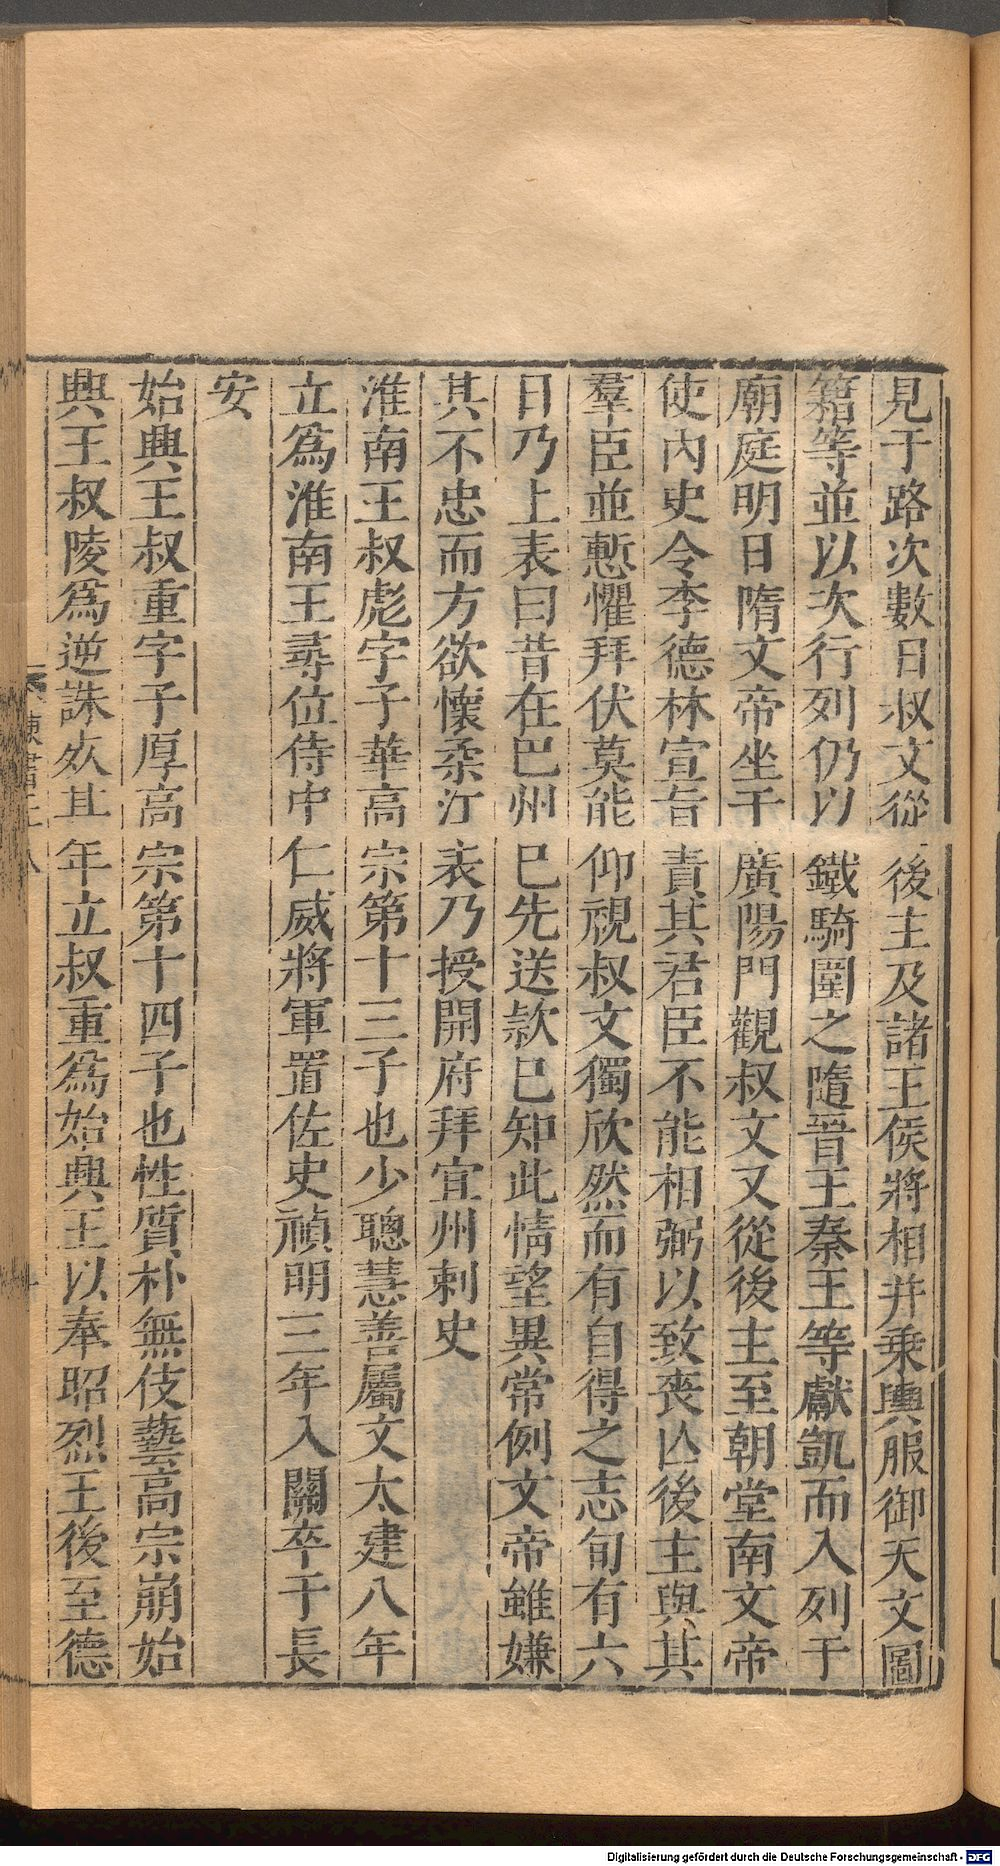 見于路次數日叔文從後主及諸王侯將相并乗輿服御天文圖
籍等並以次行列仍以鐵騎圍之隨晉王秦王等獻凱而入列于
廟庭明日隋文帝坐于廣陽門觀叔文又從後主至朝堂南文帝
使內史令李德林宣旨責其君臣不能相弼以致喪亾後主與其
羣臣並慙懼拜伏莫能仰視叔文獨欣然而有自得之志旬有六
日乃上表曰昔在巴州巳先送款巳知此情望異常例文帝雖嫌
其不忠而方欲懷柔江表乃授開府拜宜州刺史
淮南王叔彪字子華高宗第十三子也少聰慧善屬文太建八年
立爲淮南王尋位侍中仁威將軍置佐史禎明三年入關卒于長
安
始興王叔重字子厚高宗第十四子也性質朴無伎藝高宗崩始
興王叔陵爲逆誅死其年立叔重爲始興王以奉昭烈王後至德
陳書
八
Digitalisierung gefördert durch die Deutsche Forschungsgemeinschaft - DFG